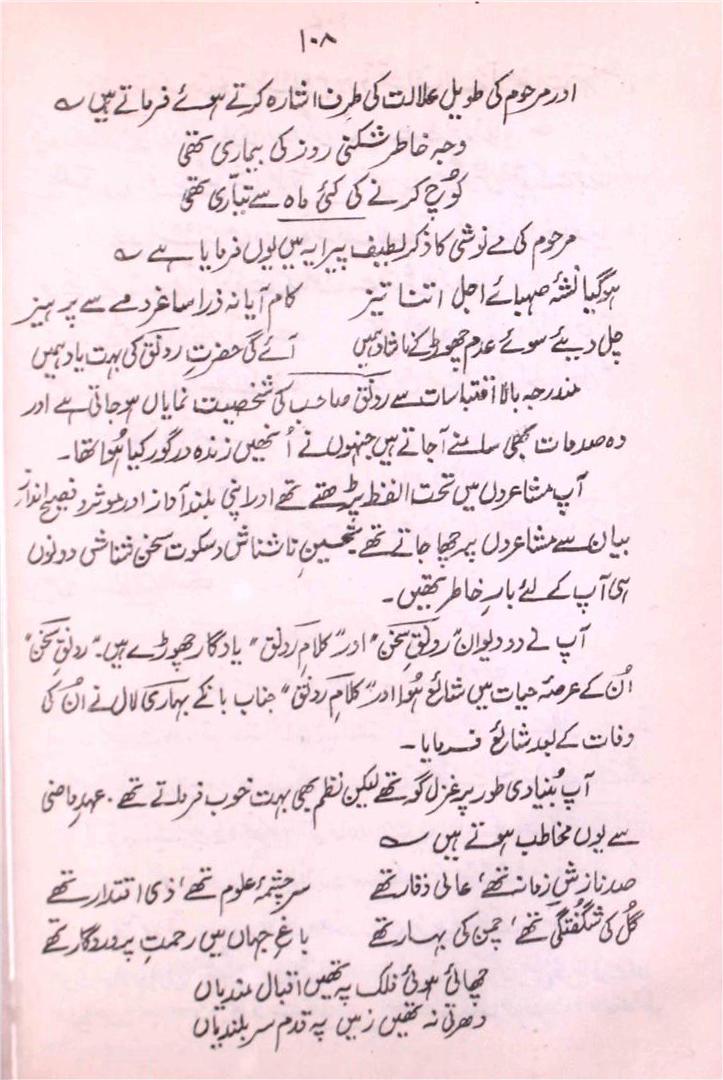 ۱۰۸
اور مرحوم کی طویل علالت کی طرف اشارہ کرتے ہوئے فرماتے ہیں ؎
وجہ خاطر شکنی روز کی بیماری تھی
کوُچ کرنے کی کئی ماہ سے تیّاری تھی
مرحوم کی مے نوشی کا ذکر لطیف پیرایہ میں یوں فرمایا ہے ؎
ہو گیا نشۂ صہبائے اجل اتنا تیز کام آیا نہ ذرا ساغر دمے سے پرہیز
چل دیئے سوئے عدم چھوڑ کے ناشاد ہمیں آئے گی حضرتِ رونق کی بہت یاد ہمیں
مندرجہ بالا اقتباسات سے رونق صاحب کی شخصیت نمایاں ہو جاتی ہے اور
وہ صدمات بھی سامنے آجاتے ہیں جنہوں نے اُنھیں زندہ درگور کیا ہُوا تھا۔
آپ مشاعروں میں تحت الفظ پڑھتے تھے اور اپنی بلند آواز اور موثر و فصیح انداز
بیان سے مشاعروں پر چھا جاتے تھے۔ تحسینِ ناشناش و سکوت سخن شناش دونوں
ہی آپ کے لئے بارِ خاطر تھیں۔
آپ نے دو دیوان "رونقِ سخن" اور "کلامِ رونق" یادگار چھوڑے ہیں۔ "رونقِ سخن"
اُن کے عرصۂ حیات میں شائع ہُوا اور "کلامِ رونق" جناب بانکے بہاری لال نے اُن کی
وفات کے بعد شائع فرمایا۔
آپ بُنیادی طور پر غزل گو تھے لیکن نظم بھی بہت خوب فرماتے تھے۔ عہدِ ماضی
سے یوں مخاطب ہوتے ہیں ؎
صد نازشِ زمانہ تھے، عالی وقار تھے سرچشمۂ علوم تھے، ذی اقتدار تھے
گُل کی شگُفتگی تھے، چمن کی بہار تھے باغِ جہاں میں رحمتِ پروردگار تھے
چھائی ہوئی فلک پہ تھیں اقبال مندیاں
دھرتی نہ تھیں زمیں پہ قدم سربلندیاں